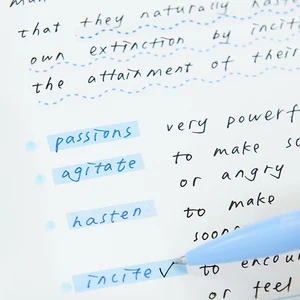 that they naturally
own extinction by
the attainment of their
passions very
agitate to make
or angry
hasten to make
incite ✓ to
or feel